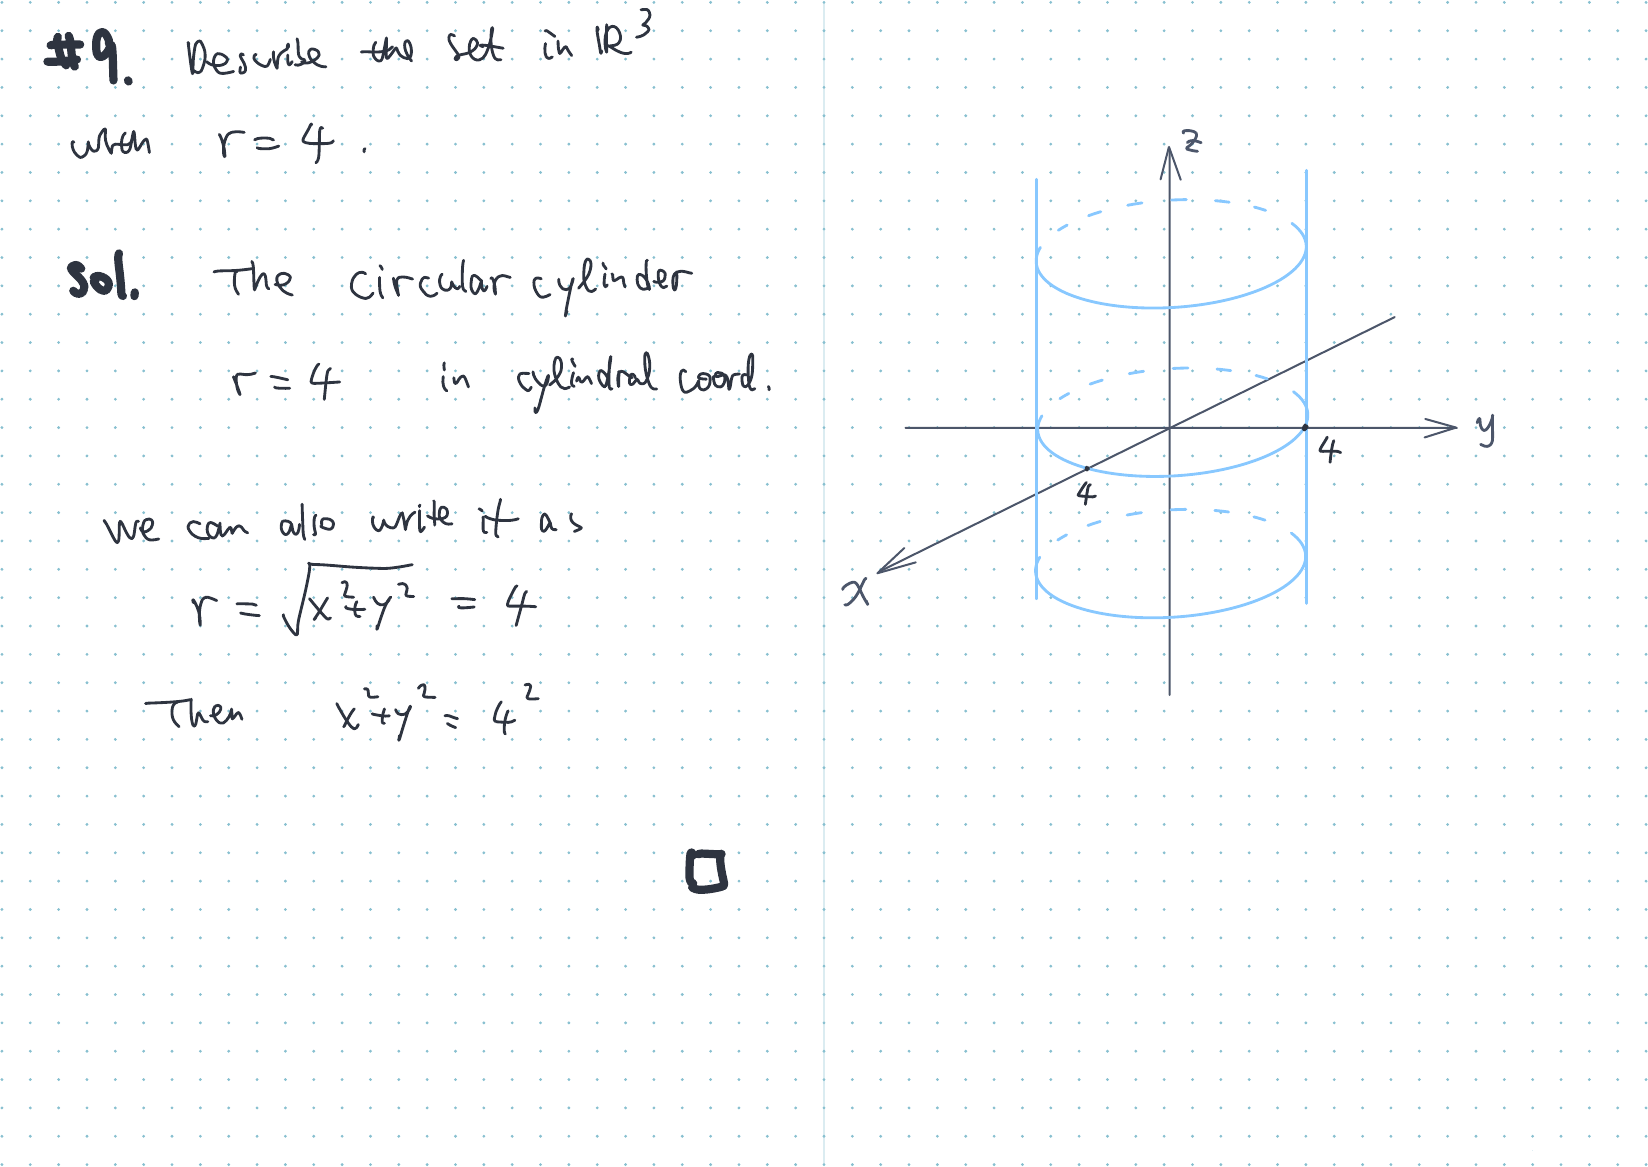 #9. Describe the set in ℝ³
with r = 4 .
Sol. The circular cylinder
r = 4 in cylindral coord.
we can also write it as
r = √(x²+y²) = 4
Then x²+y² = 4²
z
y
4
4
x